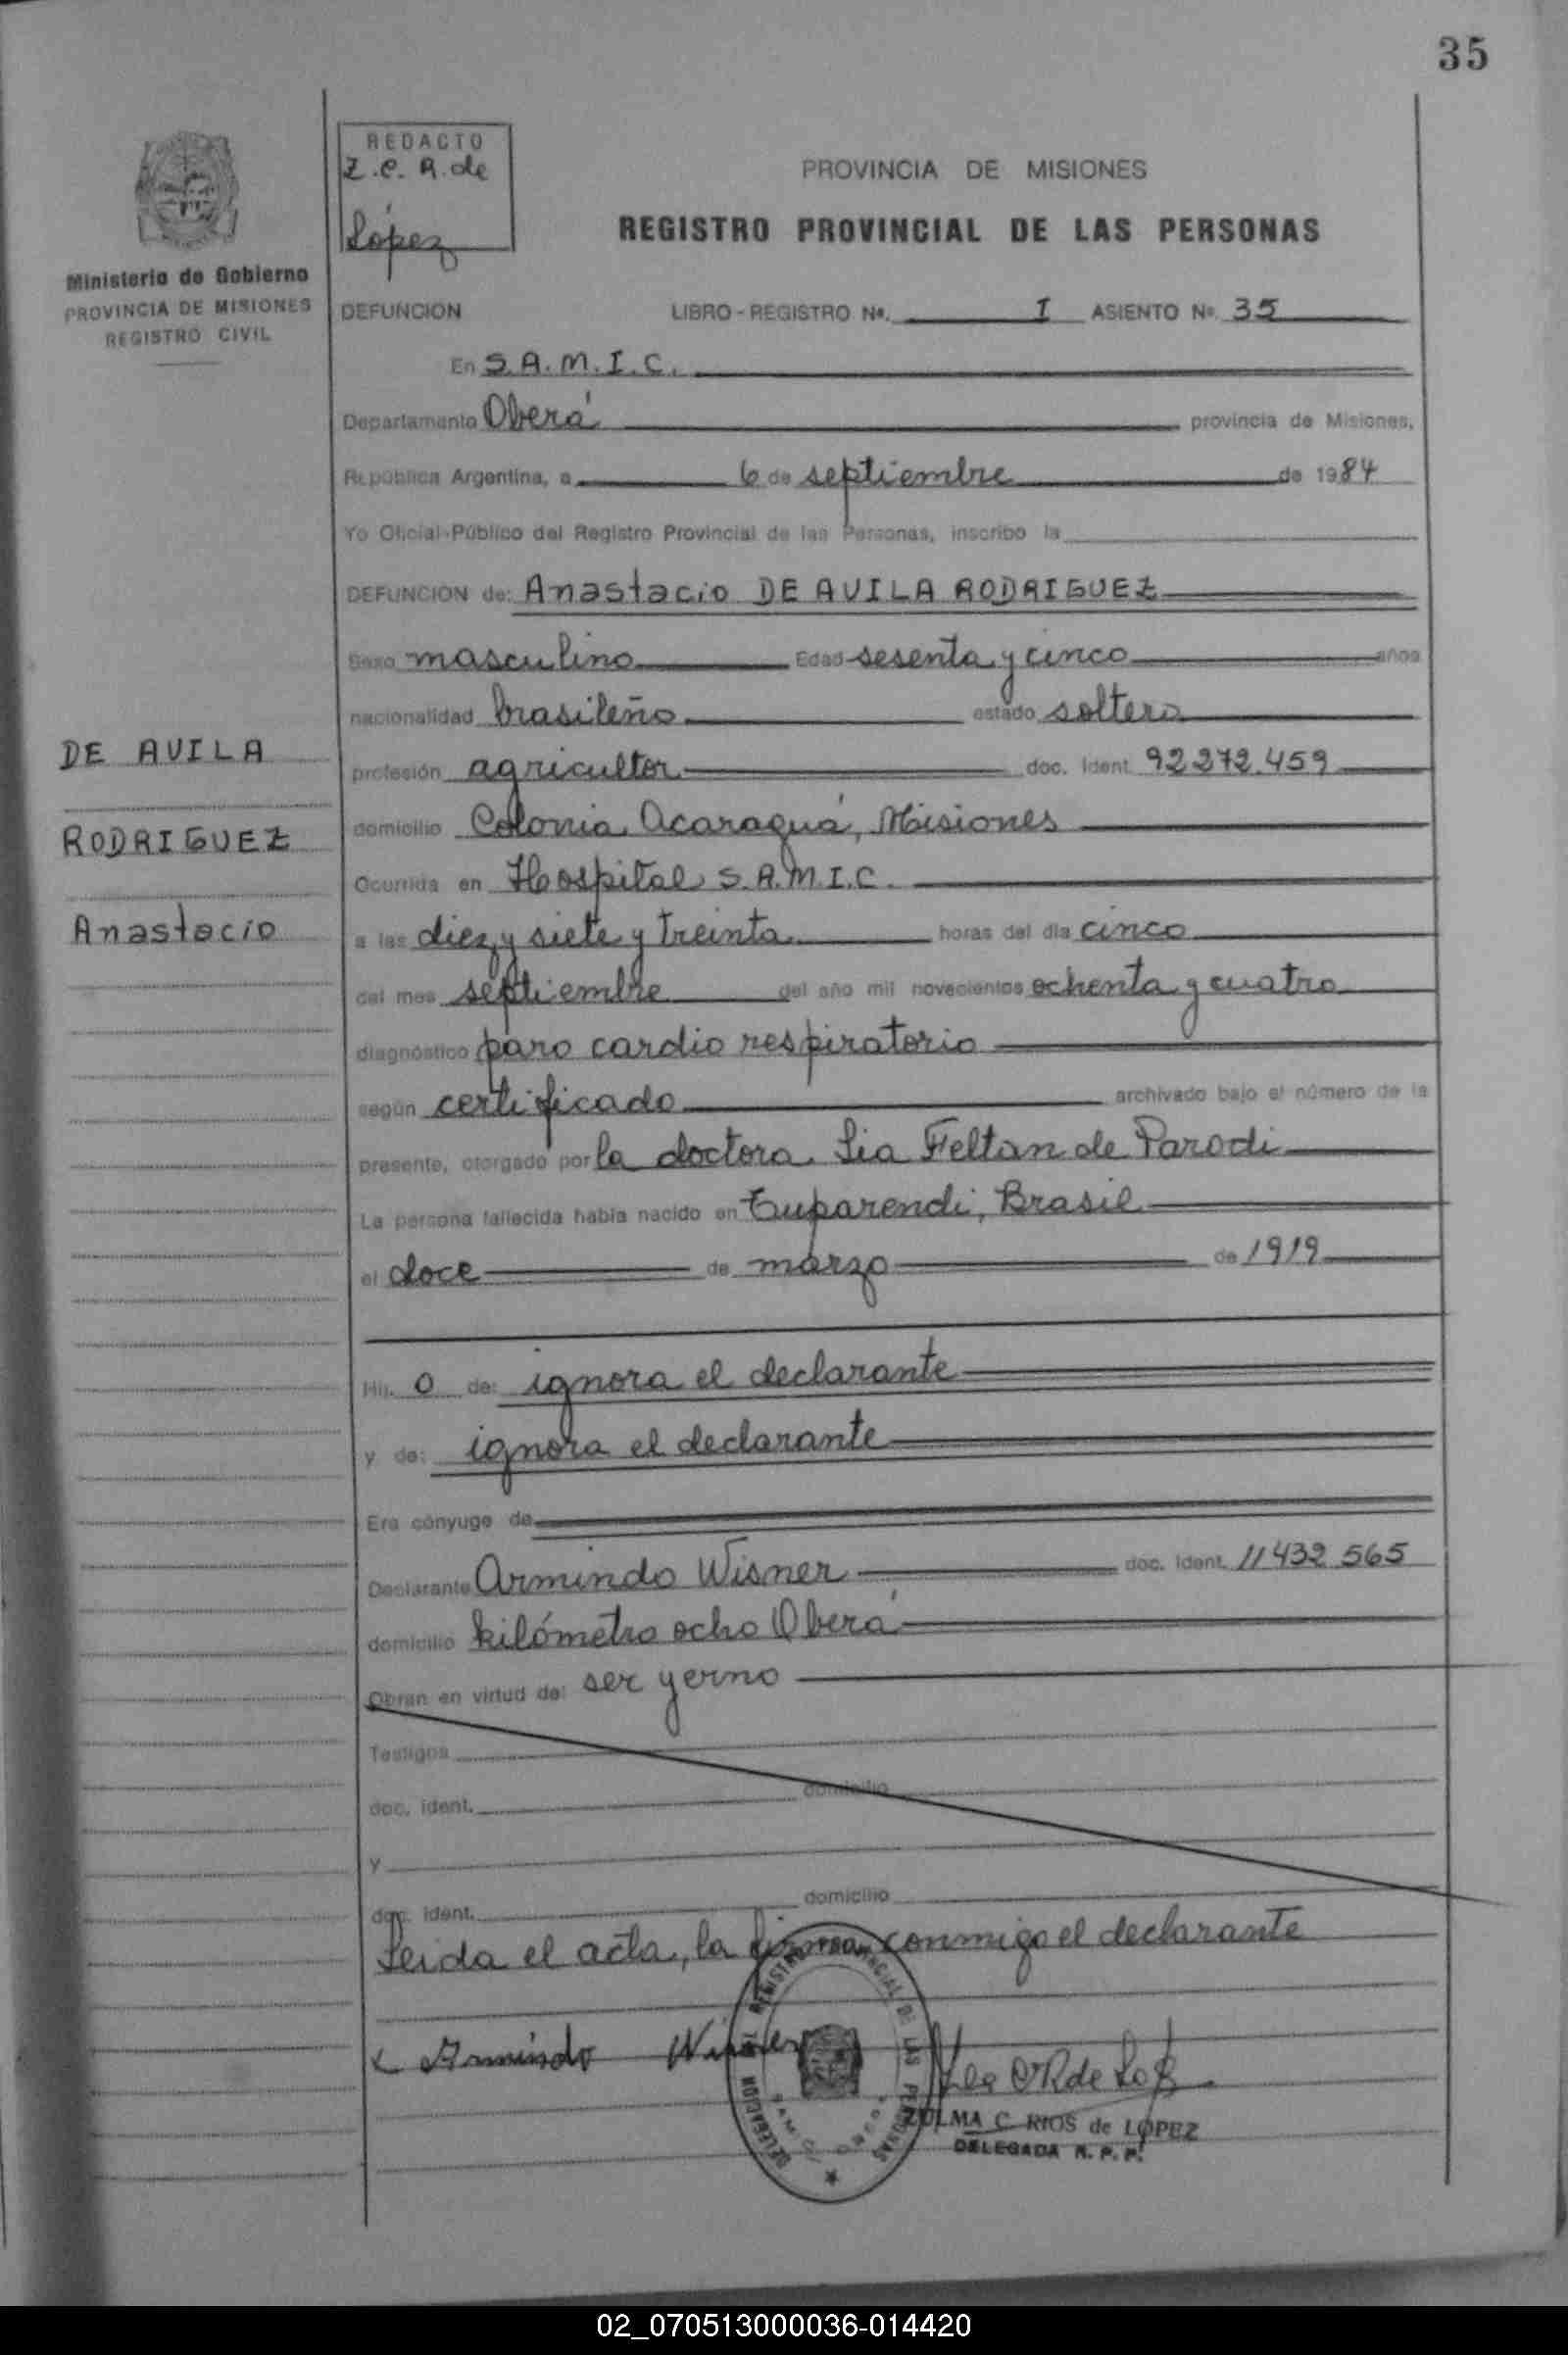 35
REDACTO
Z.C.R. de
López
PROVINCIA DE MISIONES
REGISTRO PROVINCIAL DE LAS PERSONAS
Ministerio de Gobierno
PROVINCIA DE MISIONES
REGISTRO CIVIL
DEFUNCION LIBRO-REGISTRO Nº. I ASIENTO Nº. 35
En S.A.M.I.C.
Departamento Oberá provincia de Misiones,
República Argentina, a 6 de septiembre de 1984
Yo Oficial Público del Registro Provincial de las Personas, inscribo la
DEFUNCION de: Anastacio DE AVILA RODRIGUEZ
Sexo masculino Edad sesenta y cinco años
nacionalidad brasileño estado soltero
DE AVILA
profesión agricultor doc. ident. 92272.459
domicilio Colonia Acaraguá, Misiones
RODRIGUEZ
Ocurrida en Hospital S.A.M.I.C.
Anastacio
a las diez y siete y treinta horas del día cinco
del mes septiembre del año mil novecientos ochenta y cuatro
diagnóstico paro cardio respiratorio
según certificado archivado bajo el número de la
presente, otorgado por la doctora Lia Feltan de Parodi
La persona fallecida había nacido en Tuparendi, Brasil
el doce de marzo de 1919
Hij. o de: ignora el declarante
y de: ignora el declarante
Era cónyuge de
Declarante Armindo Wisner doc. ident. 11432 565
domicilio kilómetro ocho Oberá
Obran en virtud de: ser yerno
Testigos
doc. ident. domicilio
y
doc. ident. domicilio
Leida el acta, la firma conmigo el declarante
Armindo Wisner
REGISTRO PROVINCIAL DE LAS PERSONAS
DELEGACION
ZULMA C. RIOS de LOPEZ
DELEGADA R.P.P.
02_070513000036-014420